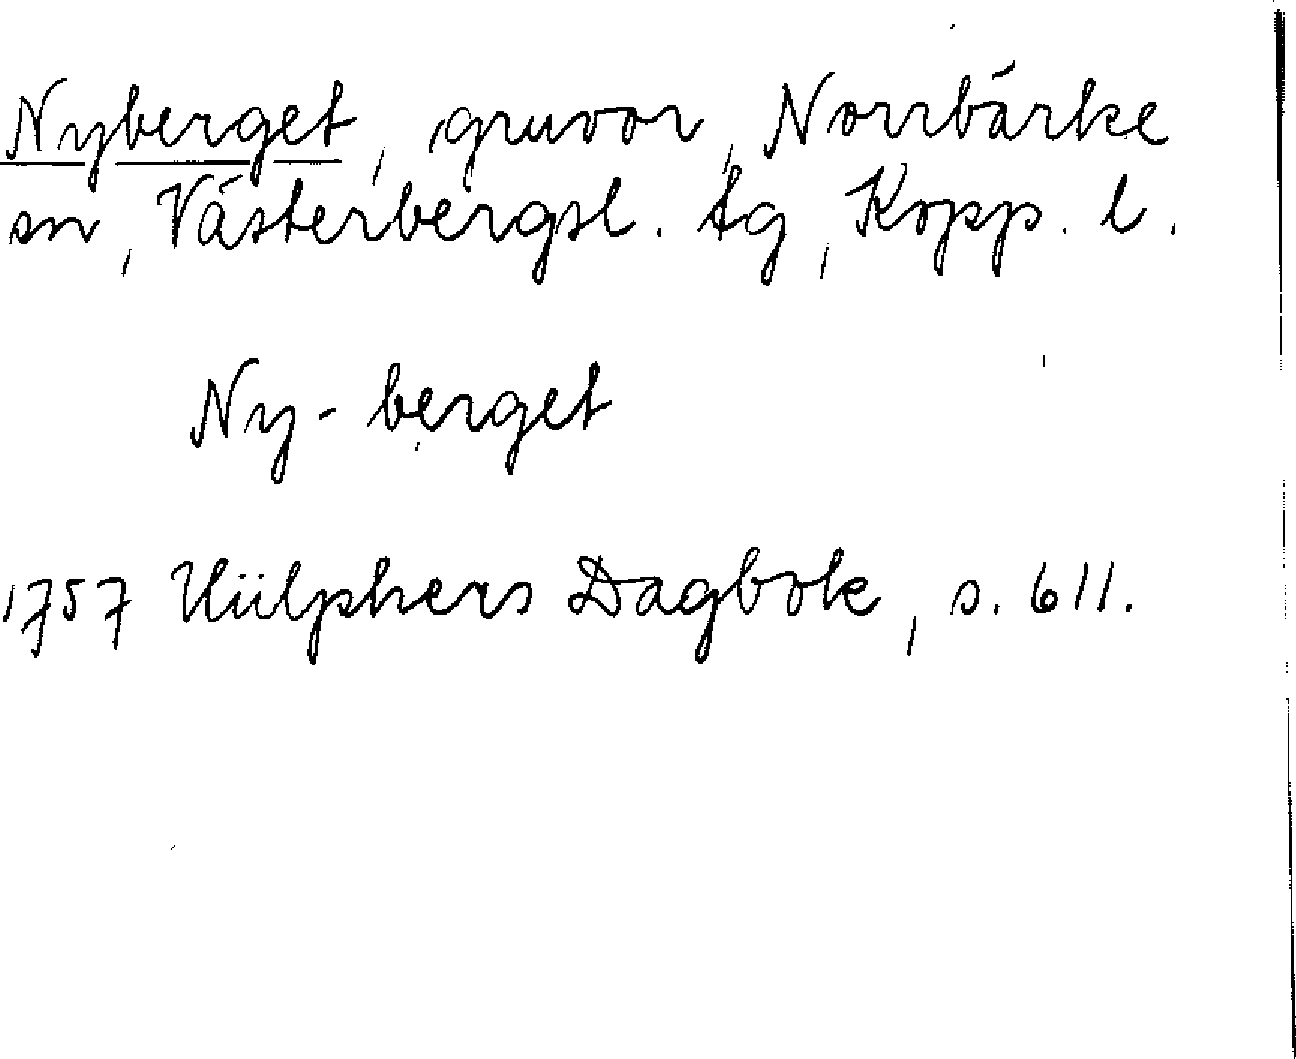 Nyberget, gruvor, Norrbärke
sn, Västerbergsl. tg, Kopp. l.
Ny-berget
1757 Hülphers Dagbok, s. 611.